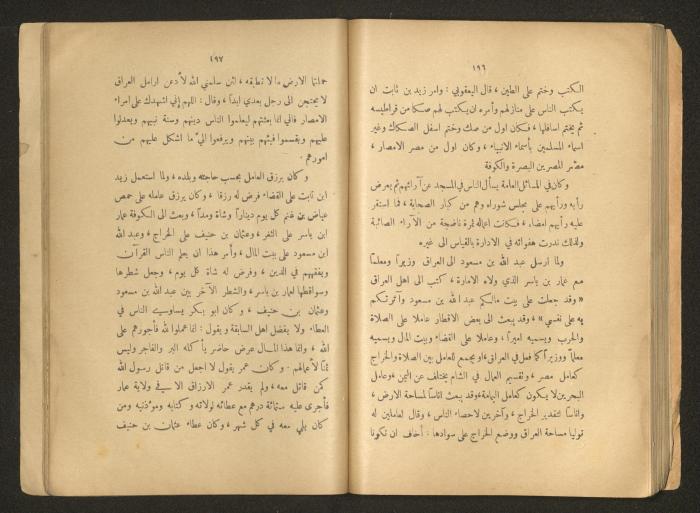 ١٩٦
الكتب وختم على الطين ، قال اليعقوبي : وامر زيد بن ثابت ان
يكتب الناس على منازلهم وأمره ان يكتب لهم صكاكا من قراطيس
ثم يختم اسافلها ، فكان اول من صك وختم اسفل الصكاك وغير
اسماء المسلمين بأسماء الانبياء ، وكان اول من مصر الامصار ،
مصر المصرين البصرة والكوفة
وكان في المسائل العامة يسأل الناس في المسجد عن آرائهم ثم يعرض
رأيه ورأيهم على مجلس شوراه وهم من كبار الصحابة ، فما استقر
عليه رأيهم امضاه ، فكانت اعماله ثمرة ناضجة من الآراء الصائبة
ولذلك ندرت هفواته في الادارة بالقياس الى غيره
ولما ارسل عبد الله بن مسعود الى العراق وزيراً ومعلماً
مع عمار بن ياسر الذي ولاه الامارة ، كتب الى اهل العراق
« وقد جعلت على بيت مالكم عبد الله بن مسعود وآثرتكم
به على نفسي » ، وقد يبعث الى بعض الاقطار عاملا على الصلاة
والحرب ويسميه اميراً ، وعاملا على القضاء وبيت المال ويسميه
معلماً ووزيراً كما فعل في العراق ، او يجمع للعامل بين الصلاة والخراج
كعامل مصر ، وتقسيم العمال في الشام يختلف عن اليمن ، وعامل
البحرين لا يكون كعامل اليمامة ، وقد يبعث اناساً لمساحة الارض ،
واناساً لتقدير الخراج ، وآخرين لاحصاء الناس ، وقال لعاملين له
توليا مساحة العراق ووضع الخراج على سوادها : أخاف ان تكونا
١٩٧
حملتما الارض ما لا تطيقه ، لئن سلمني الله لأدعن ارامل العراق
لا يحتجن الى رجل بعدي ابداً ، وقال : اللهم إني اشهدك على امراء
الامصار فاني انما بعثتهم ليعلموا الناس دينهم وسنة نبيهم ويعدلوا
عليهم ويقسموا فيئهم بينهم ويرفعوا اليّ ما اشكل عليهم من
امورهم .
وكان يرزق العامل بحسب حاجته وبلده ، ولما استعمل زيد
ابن ثابت على القضاء فرض له رزقا ، وكان يرزق عامله على حمص
عياض بن غنم كل يوم ديناراً وشاة ومداً ، وبعث الى الكوفة عمار
ابن ياسر على الثغر ، وعثمان بن حنيف على الخراج ، وعبد الله
ابن مسعود على بيت المال ، وأمر هذا ان يعلم الناس القرآن
ويفقههم في الدين ، وفرض له شاة كل يوم ، وجعل شطرها
وسواقطها لعمار بن ياسر ، والشطر الآخر بين عبد الله بن مسعود
وعثمان بن حنيف ، وكان ابو بكر يساوي الناس في
العطاء ولا يفضل اهل السابقة ويقول : انما عملوا لله فأجورهم على
الله ، وانما هذا المال عرض حاضر يأكله البر والفاجر وليس
ثمناً لأعمالهم . وكان عمر يقول لا اجعل من قاتل رسول الله
كمن قاتل معه ، ولم يقدر عمر الارزاق الا في ولاية عمار
فأجرى عليه ستمائة درهم مع عطائه لولاته وكتابه ومؤذنيه ومن
كان يلي معه في كل شهر ، وكان عطاء عثمان بن حنيف